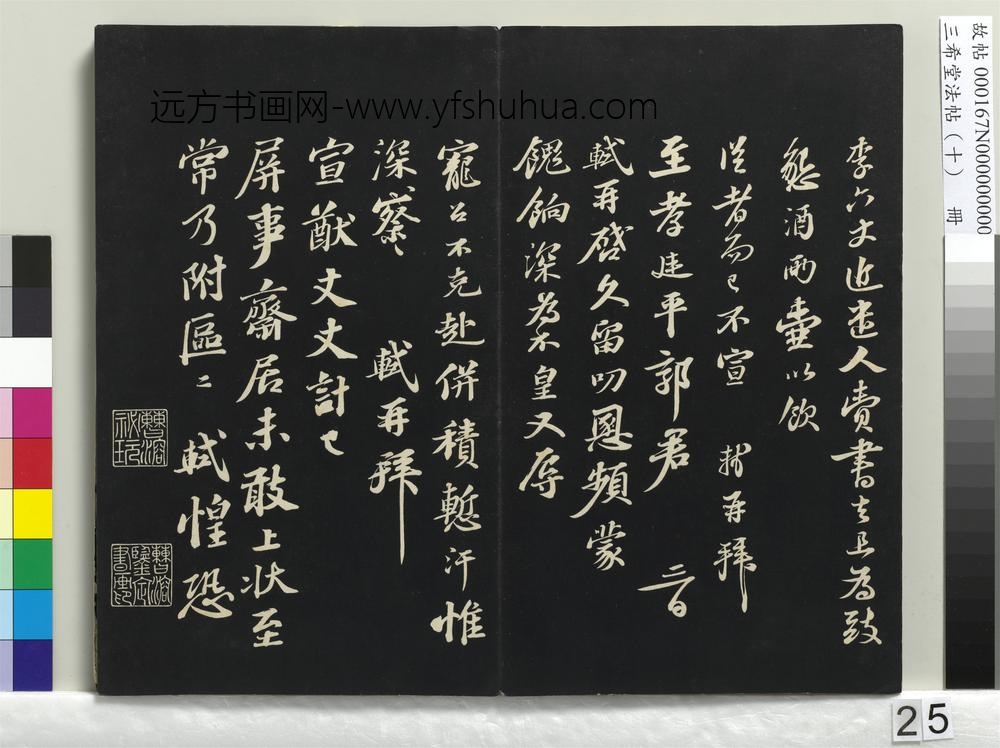 李六丈近遣人赍書去且为致
懇酒兩壷以飲
從者而已不宣 軾再拜
至孝廷平郭君 六日
軾再啓久留叨恩頻蒙
餽餉深为不皇又辱
寵召不克赴併積慙汗惟
深察〻 軾再拜
宣猷丈丈計已
屏事齋居未敢上狀至
常乃附區〻 軾惶恐
曹溶
祕玩
曹溶
鑒定
書畫
远方书画网-www.yfshuhua.com
故帖 000167N000000000
三希堂法帖（十） 册
25